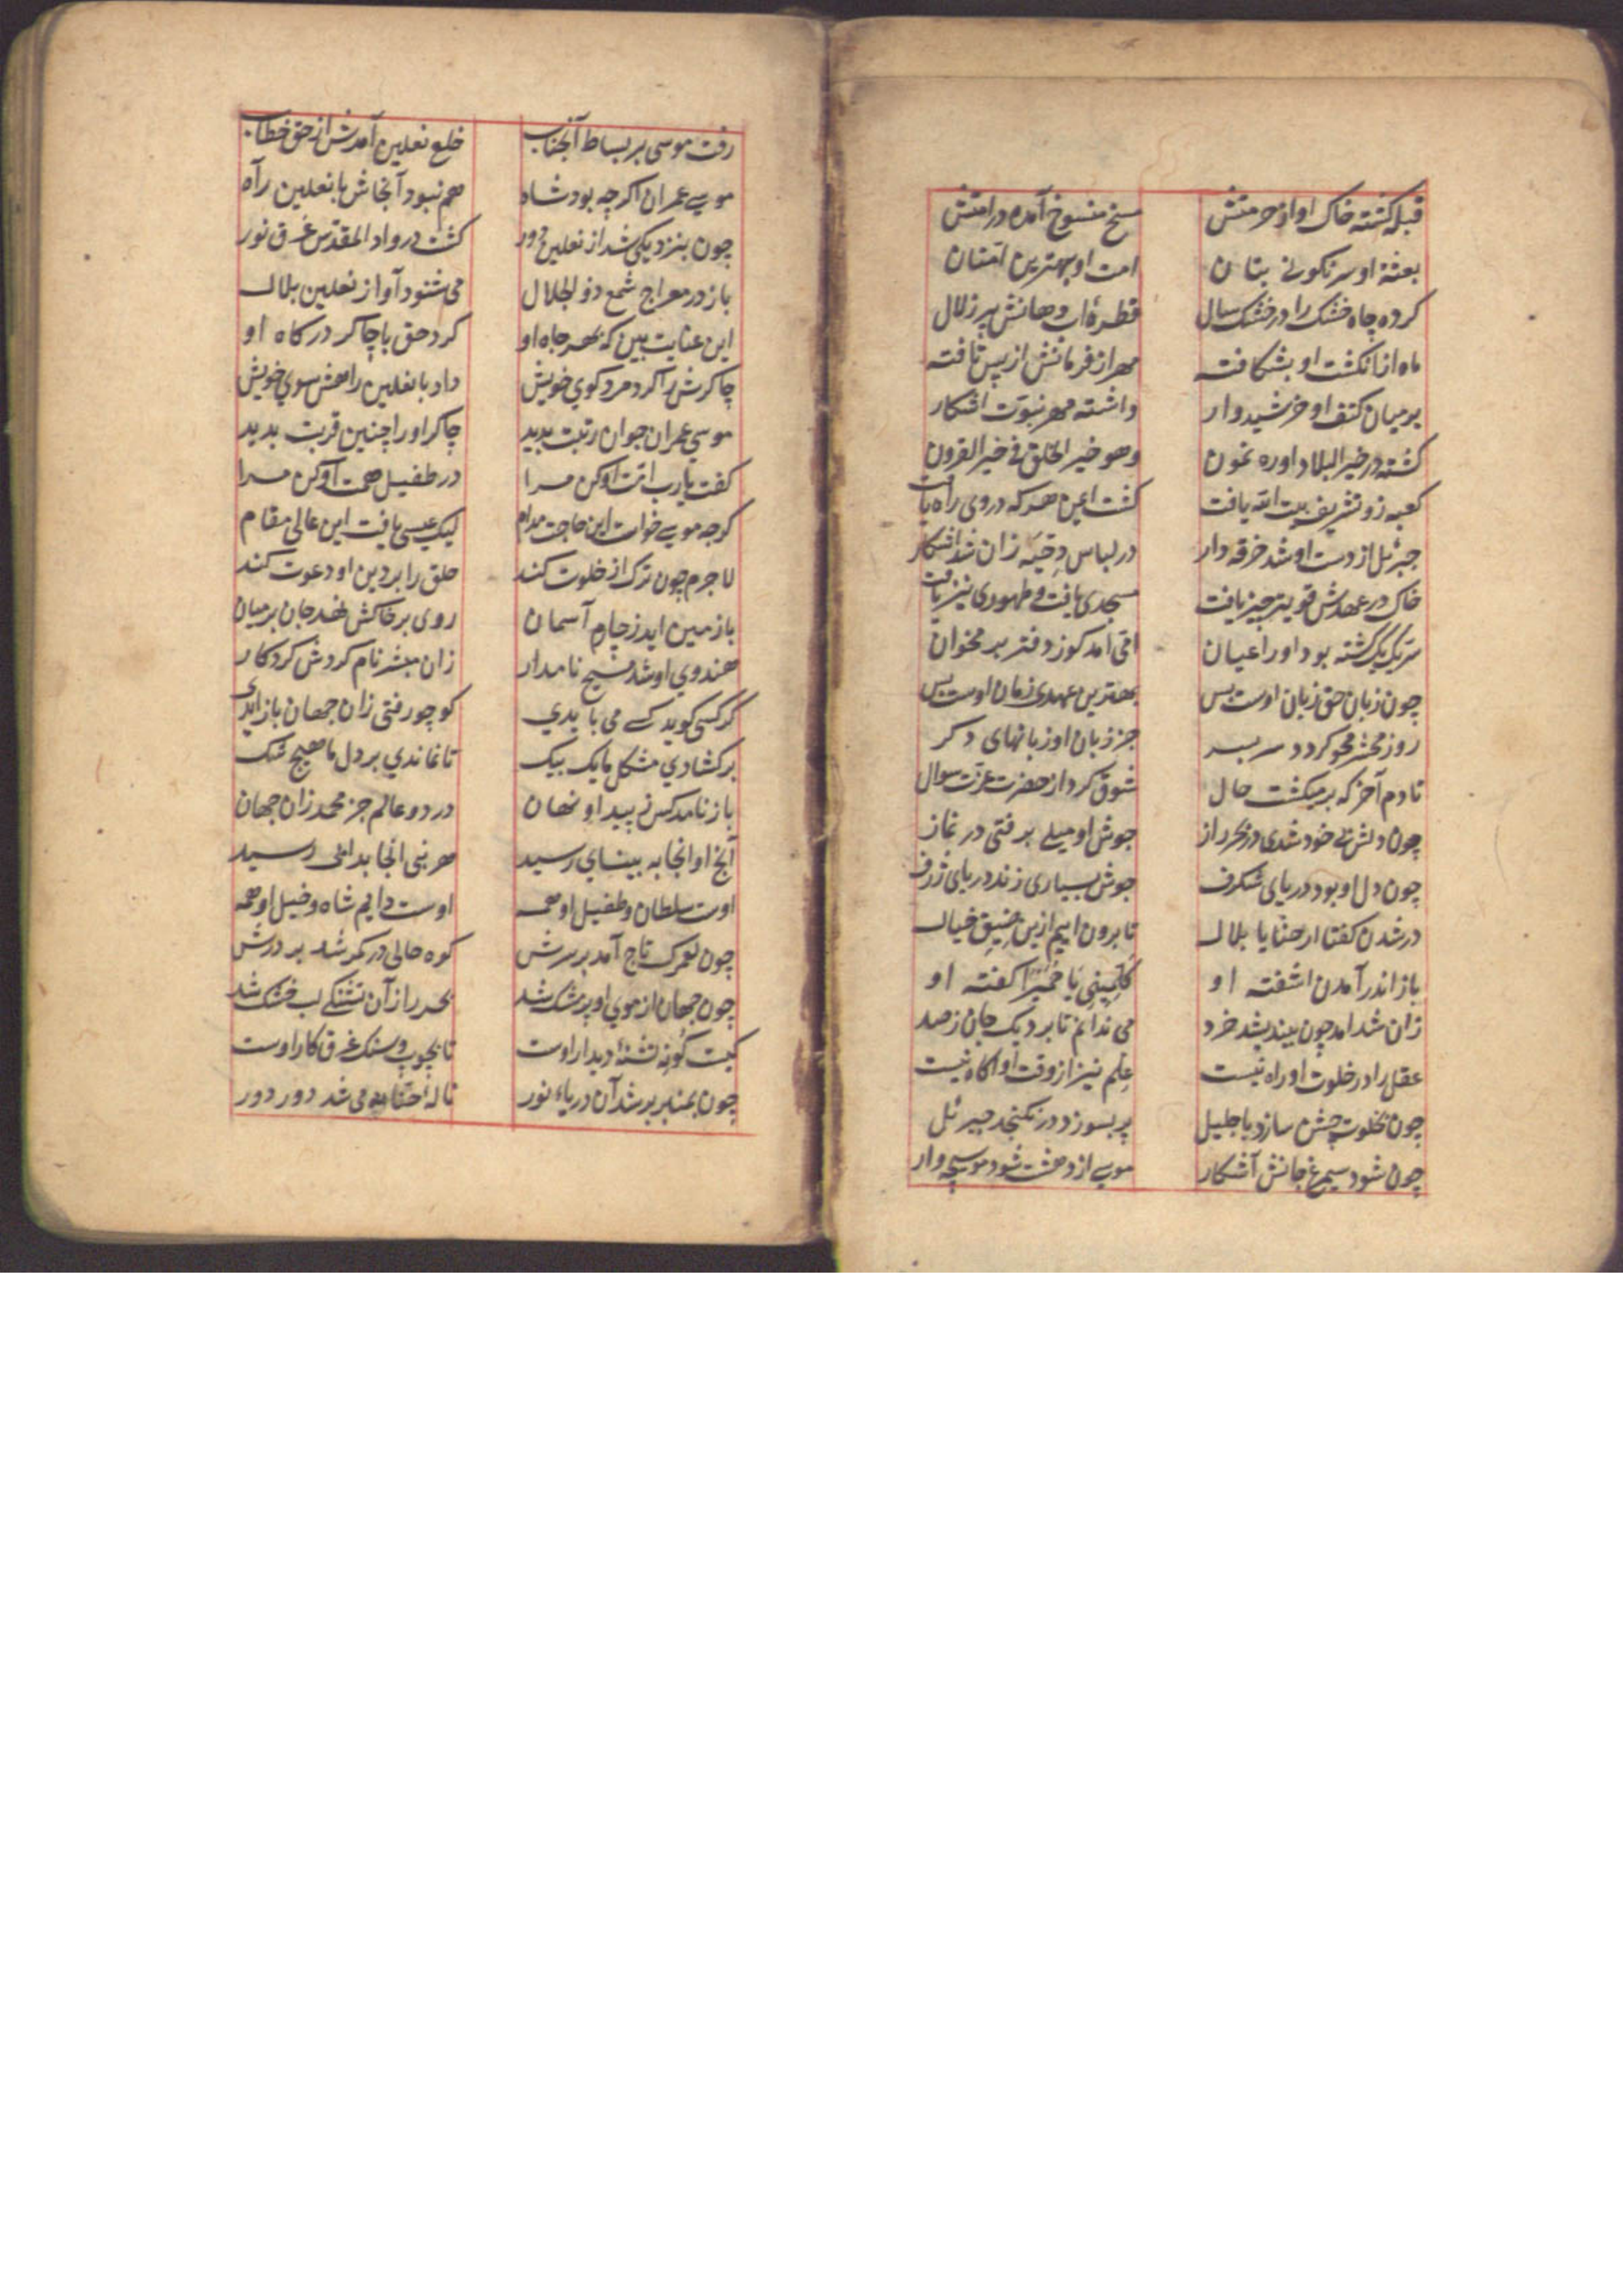 قبله کشته خاک او از حرمتش
مسخ منسوخ آمده در امتش
بعثه او سرنکونی بتان
امت او بهترین امتان
کرده چاه خشک را در خشک سال
قطرهٔ اب دهانش پر زلال
ماه از انکشت او بشکافته
مهر از فرمانش از پس تافته
بر میان کتف او خرشیدوار
داشته مهر نبوت اشکار
کشته در خیر البلاد او ره نمون
وهو خیر الخلق فی خیر القرون
کعبه زو تشریف بیت الله یافت
کشت ایمن هر که در وی راه یافت
جبرئل از دست او شد خرقه دار
در لباس دحیه زان شد اشکار
خاک در عهدش قویتر چیز یافت
مسجدی یافت و طهوری نیز یافت
سر یک یک کشته بود او را عیان
امی امد کوز دفتر بر مخوان
چون زبان حق زبان اوست بس
بهترین عهدی زمان اوست بس
روز محشر محو کردد سر بسر
جز زبان او زبانهای دکر
تا دم آخر که بر میکشت حال
شوق کرد از حضرت عزت سوال
چون دلش بی خود شدی در بحر راز
جوش او میلی برفتی در نماز
چون دل او بود دریای شکرف
جوش بسیاری زند دریای ژرف
در شدن کفتا ارحنا یا بلال
تا برون ایم ازین ضیق خیال
باز اندر آمدن اشفته او
کلمینی یا حمیرا کفته او
زان شد امد چون بیندیشد خرد
می ندانم تا برد یک جان ز صد
عقل را در خلوت او راه نیست
علم نیز از وقت او اکاه نیست
چون بخلوت جشن سازد با جلیل
پر بسوزد در نکنجد جبرئل
چون شود سیمرغ جانش آشکار
موسی از دهشت شود موسیجه وار
رفت موسی بر بساط آنجناب
خلع نعلین آمدش از حق خطاب
موسی عمران اکرچه بود شاه
هم نبود آنجاش با نعلین راه
چون بنزدیکی شد از نعلین دور
کشت در واد المقدس غرق نور
باز در معراج شمع ذو الجلال
می شنود آواز نعلین بلال
این عنایت بین که بهر جاه او
کرد حق با چاکر درکاه او
چاکرش را کرد مرد کوی خویش
داد با نعلین راهش سوی خویش
موسی عمران چو ان رتبت بدید
چاکر او را چنین قربت بدید
کفت یارب امت او کن مرا
در طفیل همت او کن مرا
کرچه موسی خواست این حاجت مدام
لیک عیسی یافت این عالی مقام
لاجرم چون ترک از خلوت کند
خلق را بر دین او دعوت کند
با زمین اید ز چارم آسمان
روی بر خاکش نهد جان بر میان
هندوی او شد مسیح نامدار
زان مبشر نام کردش کردکار
کر کسی کوید کسی می بایدی
کو چو رفتی زان جهان باز ایدی
بر کشادی مشکل ما یک بیک
تا نماندی بر دل ما هیچ شک
باز نامد کس ز پیدا و نهان
در دو عالم جز محمد زان جهان
آنچ او انجا به بینای رسید
هر نبی انجا بدانی رسید
اوست سلطان و طفیل او همه
اوست دایم شاه و خیل او همه
چون لعمرک تاج آمد بر سرش
کوه حالی در کمر شد بر درش
چون جهان از موی او پر مشک شد
بحر را زآن تشنکی لب خشک شد
کیست کونه تشنهٔ دیدار اوست
تا بچوب و سنک غرق کار اوست
چون بمنبر بر شد آن دریاء نور
نالهٔ حنانه می شد دور دور